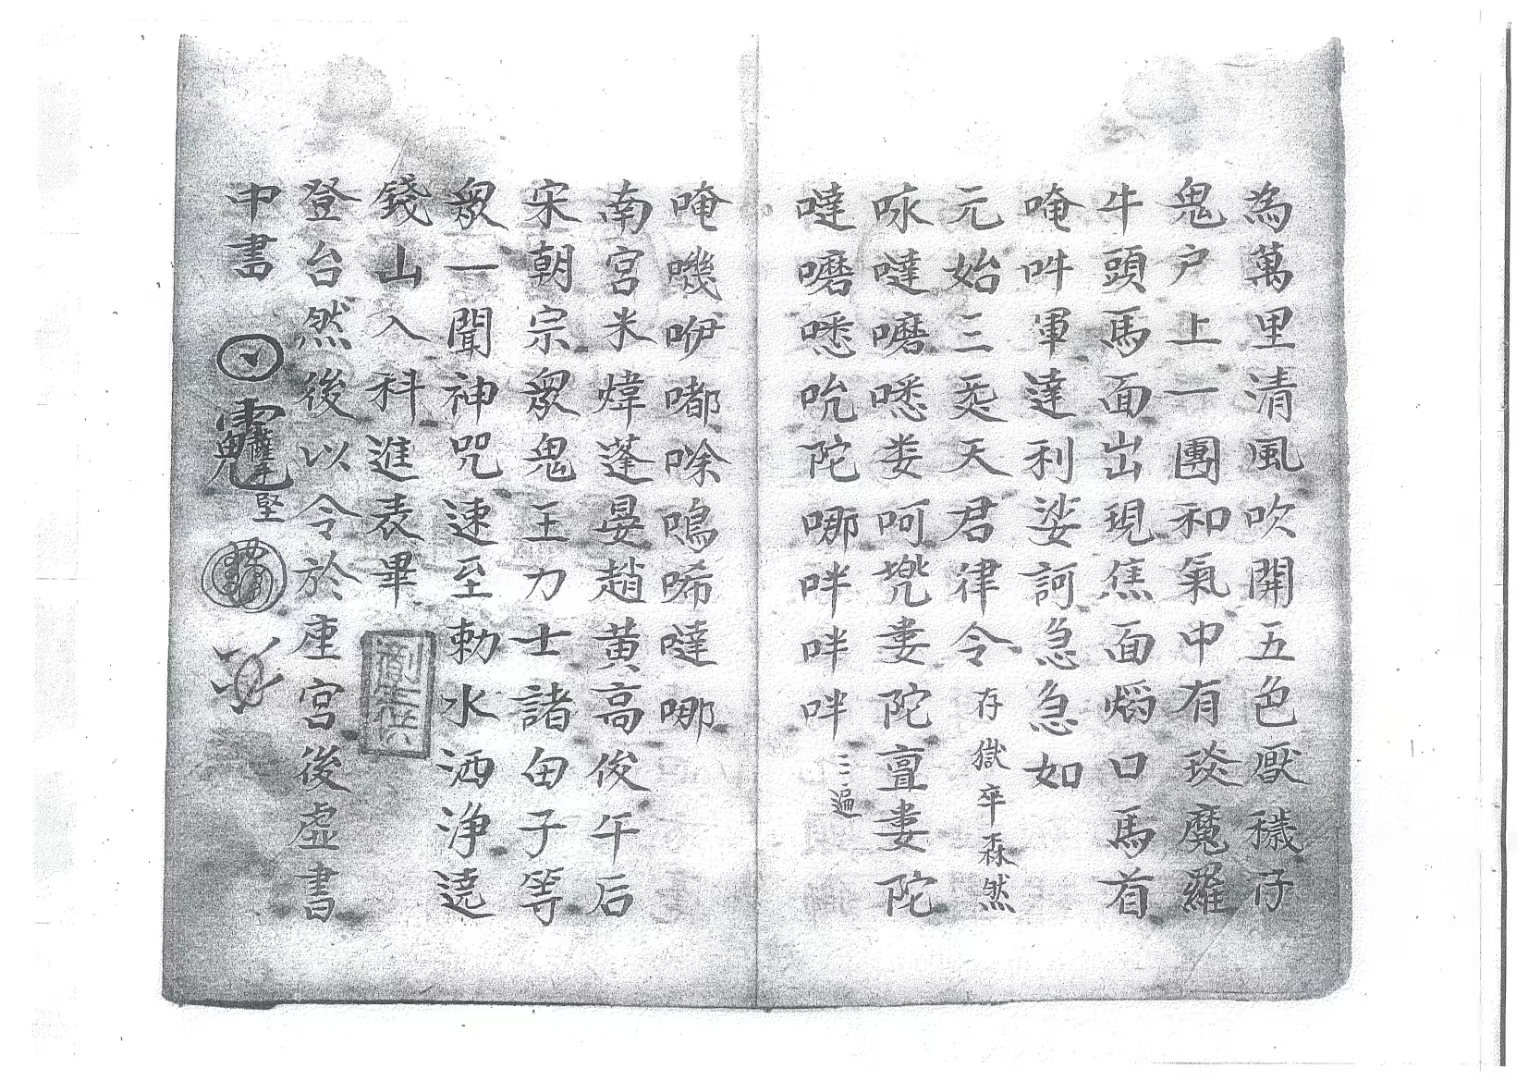 為萬里清風吹開五色厭穢存
鬼户上一團和氣中有琰魔羅
牛頭馬面出現焦面熖口馬首
唵吽軍達利娑訶急急如
元始三炁天君律令 存獄卒森然
哚噠嚰㗭娄呵兠婁陀亶婁陀
噠嚰㗭吮陀哪吽吽吽 三遍
唵嘰咿嘟唋嗚唏噠哪
南宮米煒蓬晏趙黄高俊午后
宋朝宗衆鬼王力士諸甶子等
衆一聞神咒速至勅水洒浄遶
錢山入科進表畢
登台然後以令於座宮後虚書
中書